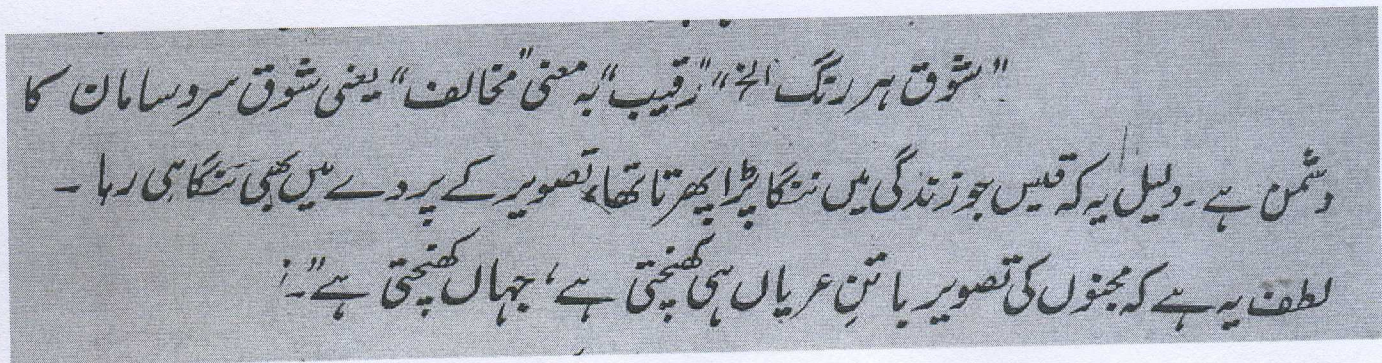 "شوق ہر رنگ الخ" "رقیب" بہ معنی "مخالف" یعنی شوق سروسامان کا
دشمن ہے۔ دلیل یہ کہ قیس جو زندگی میں ننگا پڑا پھرتا تھا، تصویر کے پردے میں بھی ننگا ہی رہا۔
لطف یہ ہے کہ مجنوں کی تصویر باتنِ عریاں ہی کھنچتی ہے، جہاں کھنچتی ہے"۔